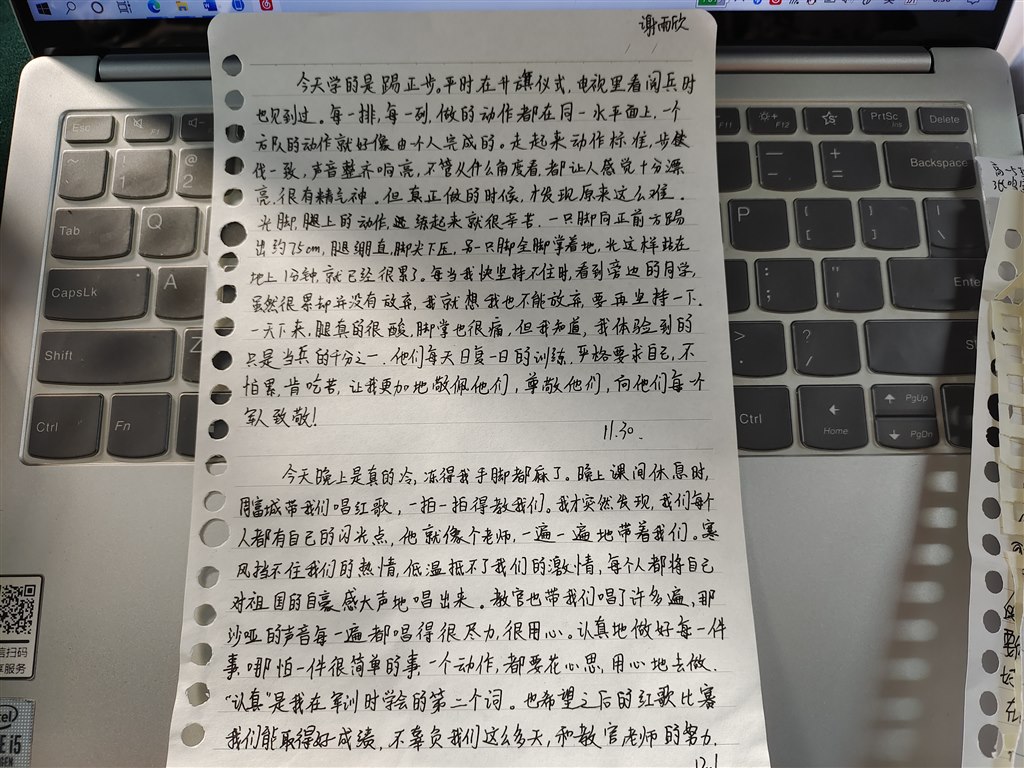 谢雨欣
今天学的是踢正步,平时在升旗仪式,电视里看阅兵时
也见到过。每一排,每一列,做的动作都在同一水平面上,一个
方队的动作就好像由一个人完成的。走起来动作标准,步伐
一致,声音整齐响亮,不管从什么角度看,都让人感觉十分漂
亮,很有精气神。但真正做的时候,才发现原来这么难。
光脚,腿上的动作,练起来就很辛苦。一只脚向正前方踢
出约75cm,腿绷直,脚尖下压,另一只脚全脚掌着地,光这样站在
地上1分钟,就已经很累了。每当我快坚持不住时,看到旁边的同学,
虽然很累却并没有放弃,我就想我也不能放弃,要再坚持一下。
一天下来,腿真的很酸,脚掌也很痛,但我知道,我体验到的
只是当兵的十分之一。他们每天日复一日的训练,严格要求自己,不
怕累,肯吃苦,让我更加地敬佩他们,尊敬他们,向他们每一个
军人致敬!
11.30.
今天晚上是真的冷,冻得我手脚都麻了。晚上课间休息时,
周富城带我们唱红歌,一拍一拍得教我们。我才突然发现,我们每个
人都有自己的闪光点,他就像个老师,一遍一遍地带着我们。寒
风挡不住我们的热情,低温抵不了我们的激情,每个人都将自己
对祖国的自豪感大声地唱出来。教官也带我们唱了许多遍,那
沙哑的声音每一遍都唱得很尽力,很用心。认真地做好每一件
事,哪怕一件很简单的事,一个动作,都要花心思,用心地去做。
“认真”是我在军训时学会的第二个词。也希望之后的红歌比赛
我们能取得好成绩,不辜负我们这么多天,和教官老师的努力.
12.1
Esc
F1
F12
PrtSc
Ins
Delete
Backspace
Tab
Q
P
CapsLk
A
Enter
Shift
Z
Ctrl
Fn
Home
PgUp
PgDn